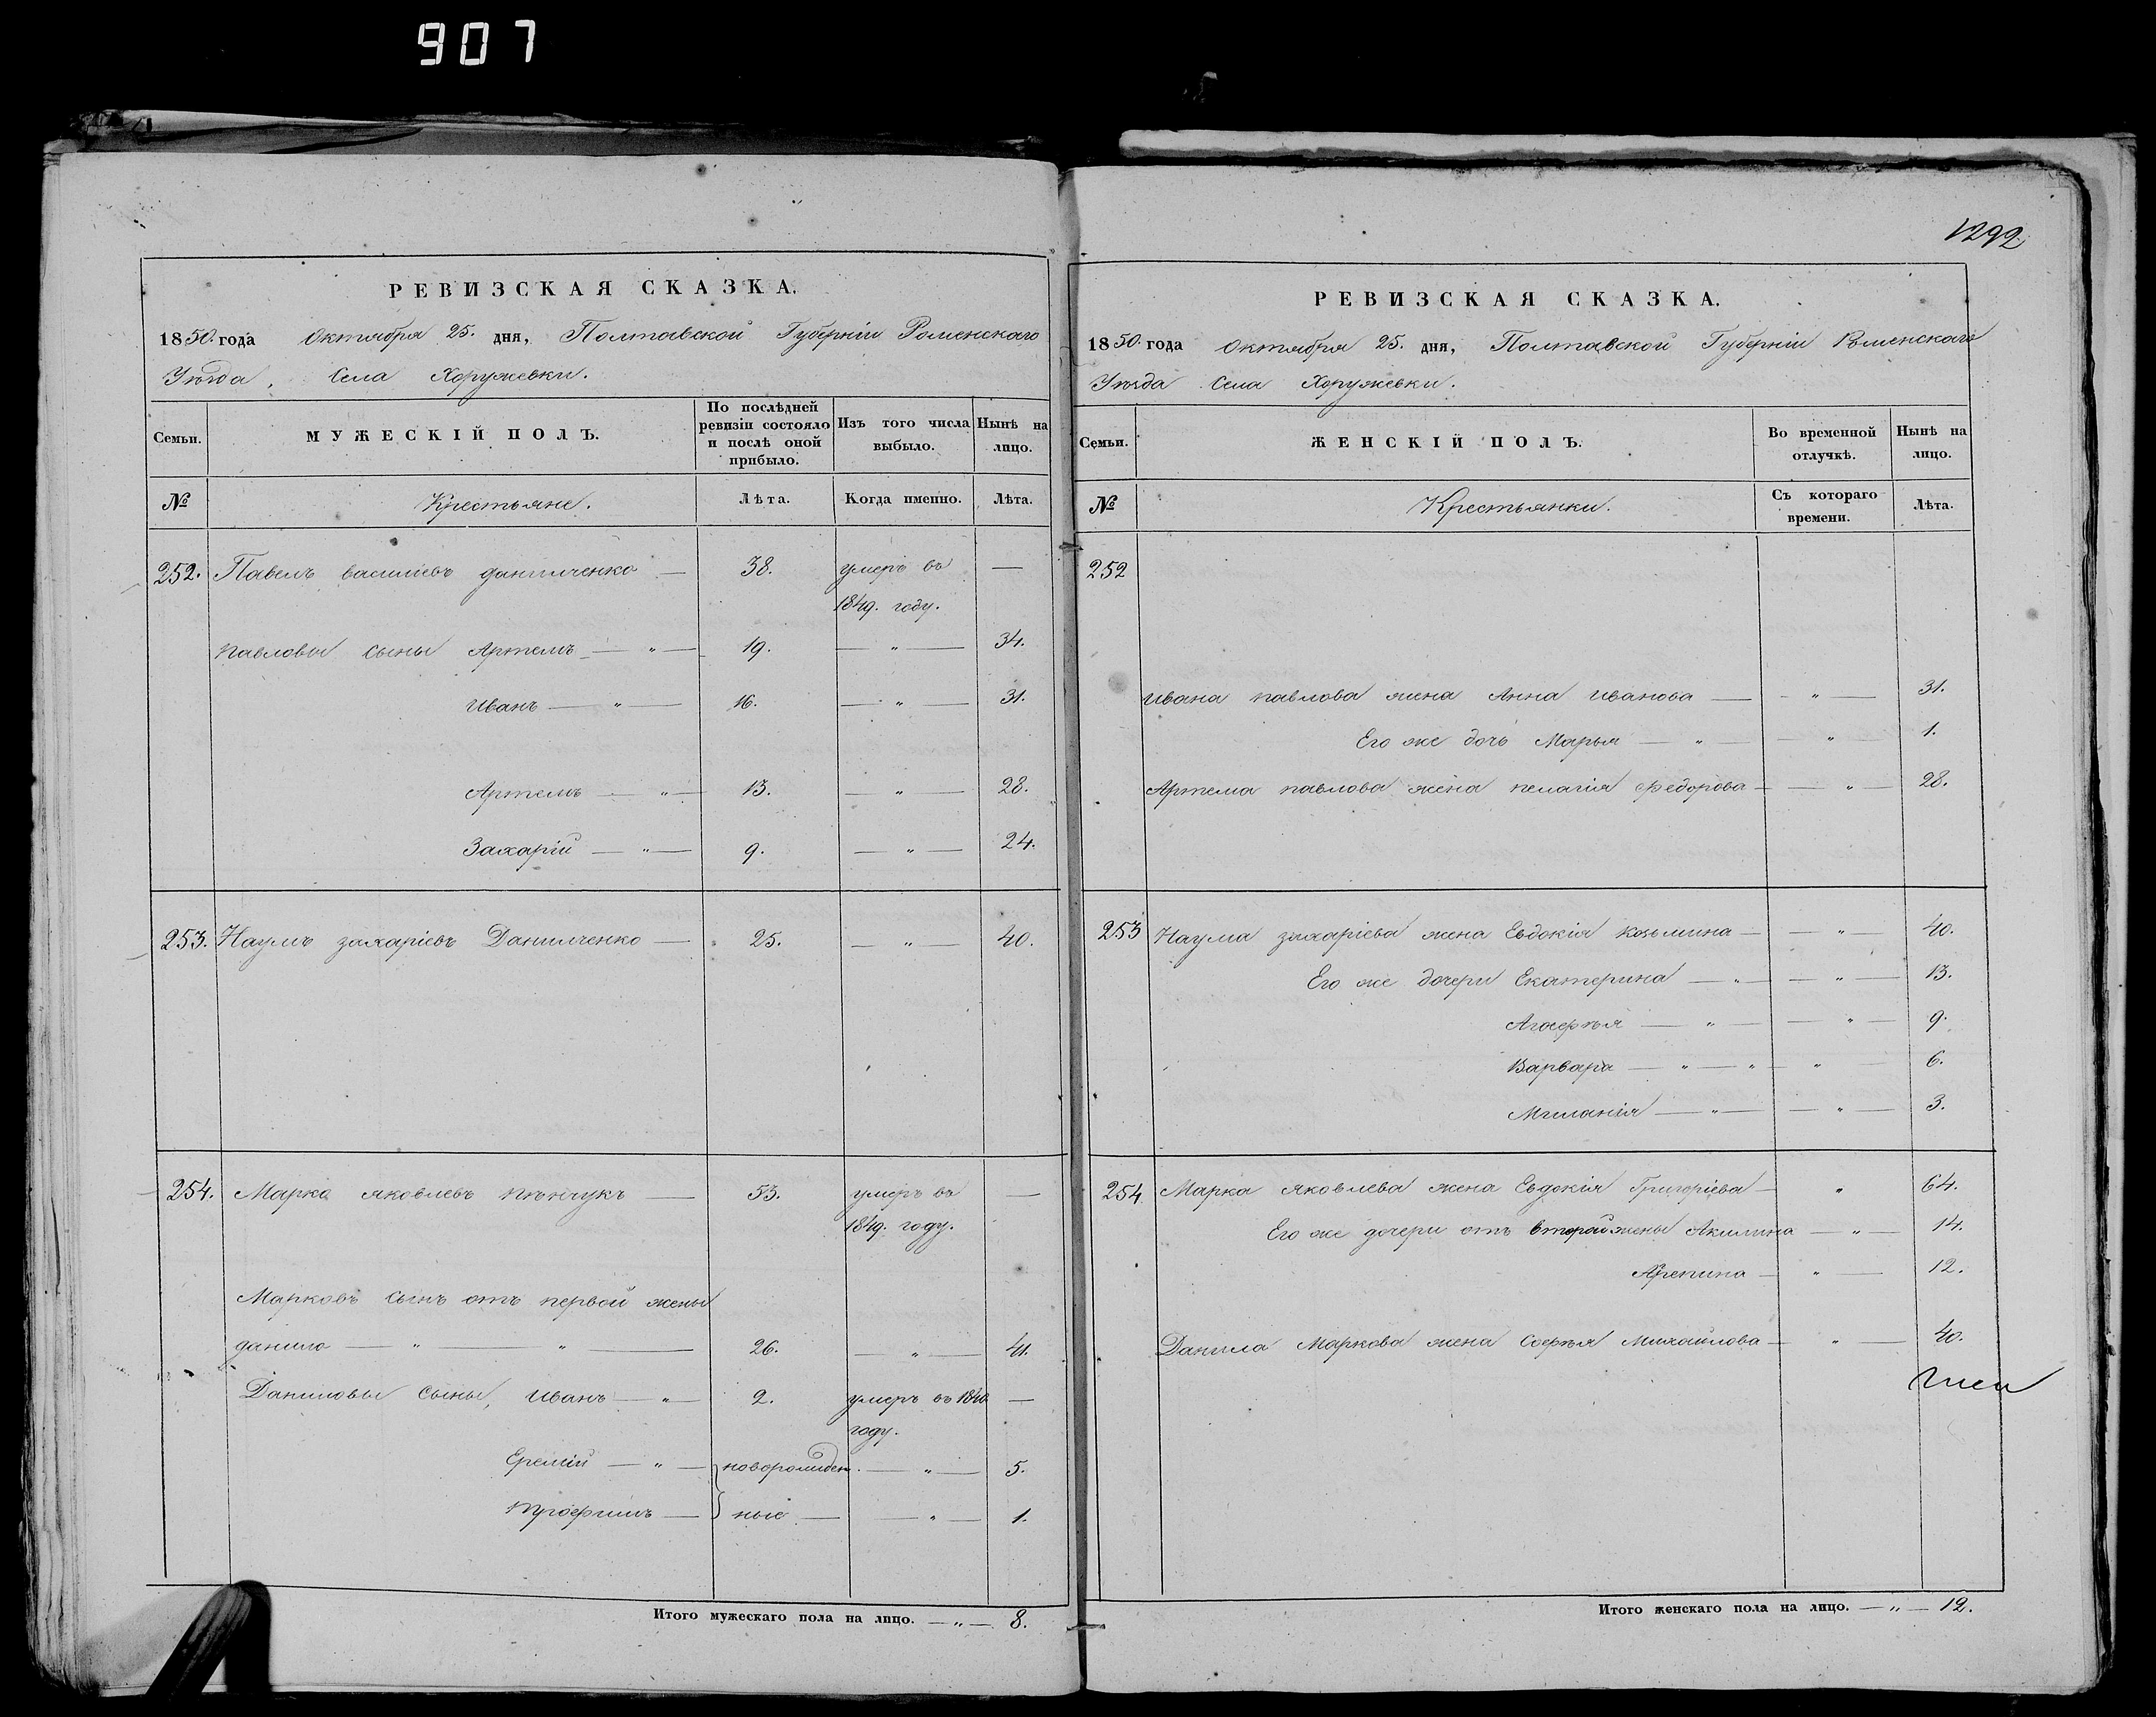 907
РЕВИЗСКАЯ СКАЗКА.
1850. года Октября 25. дня, Полтавской Губерніи Роменскаго
Уѣзда, Села Хоружевки.
Семьи. МУЖЕСКІЙ ПОЛЪ. По послѣдней ревизіи состояло и послѣ оной прибыло. Изъ того числа выбыло. Нынѣ на лицо.
№ Крестьяне. Лѣта. Когда именно. Лѣта.
252. Павелъ васильевъ данильченко — 38. умеръ въ —
1849. году.
павловы сыны Артемъ — " — 19. — " — 34.
Иванъ — " — 16. — " — 31.
Артемъ — " — 13. — " — 28.
Захарій — " — 9. — " — 24.
253. Наумъ захаріевъ Данильченко — 25. — " — 40.
254. Марко яковлевъ — 53. умеръ въ —
1849. году.
Марковъ сынъ отъ первой жены
данило — " — " — 26. — " — 41.
Даниловы сыны, Иванъ — " — 2. умеръ въ 1840 —
году.
Еремій — " — новорожден. — " — 5.
Трофимъ — ные — — " — 1.
Итого мужескаго пола на лицо. — " — 8.
1292
РЕВИЗСКАЯ СКАЗКА.
1850. года Октября 25. дня, Полтавской Губерніи Роменскаго
Уѣзда Села Хоружевки.
Семьи. ЖЕНСКІЙ ПОЛЪ. Во временной отлучкѣ. Нынѣ на лицо.
№ Крестьянки. Съ котораго времени. Лѣта.
252
Ивана павлова жена Анна Иванова — — " — 31.
Его же дочь Марья — " — — " — 1.
Артема павлова жена пелагія федорова — — " — 28.
253 Наума захаріева жена Евдокія козьмина — — " — 40.
Его же дочери Екатерина — " — — " — 13.
Агафья — " — — " — 9.
Варвара — " — " — " — 6.
Миланія — " — — " — 3.
254 Марка яковлева жена Евдокія Григоріева — " 64.
Его же дочери отъ второй жены Акилина — " — 14.
Агрепина — " — 12.
Данила Маркова жена Софья Михайлова — " — 40.
Итого женскаго пола на лицо. — " — 12.